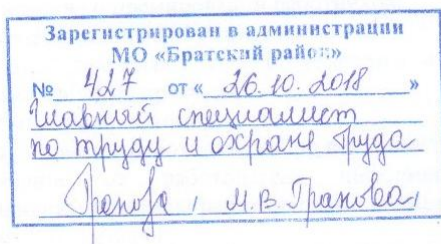 Зарегистрирован в администрации
МО «Братский район»
№ 427 от « 26.10.2018 »
Главный специалист
по труду и охране труда
М.В.